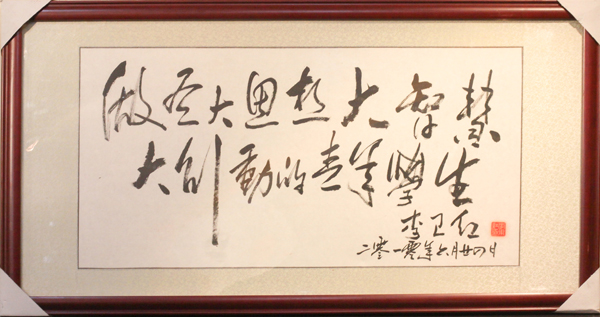 做有大思想大智慧
大行動的青年學生
李卫红
二零一零年六月廿四日